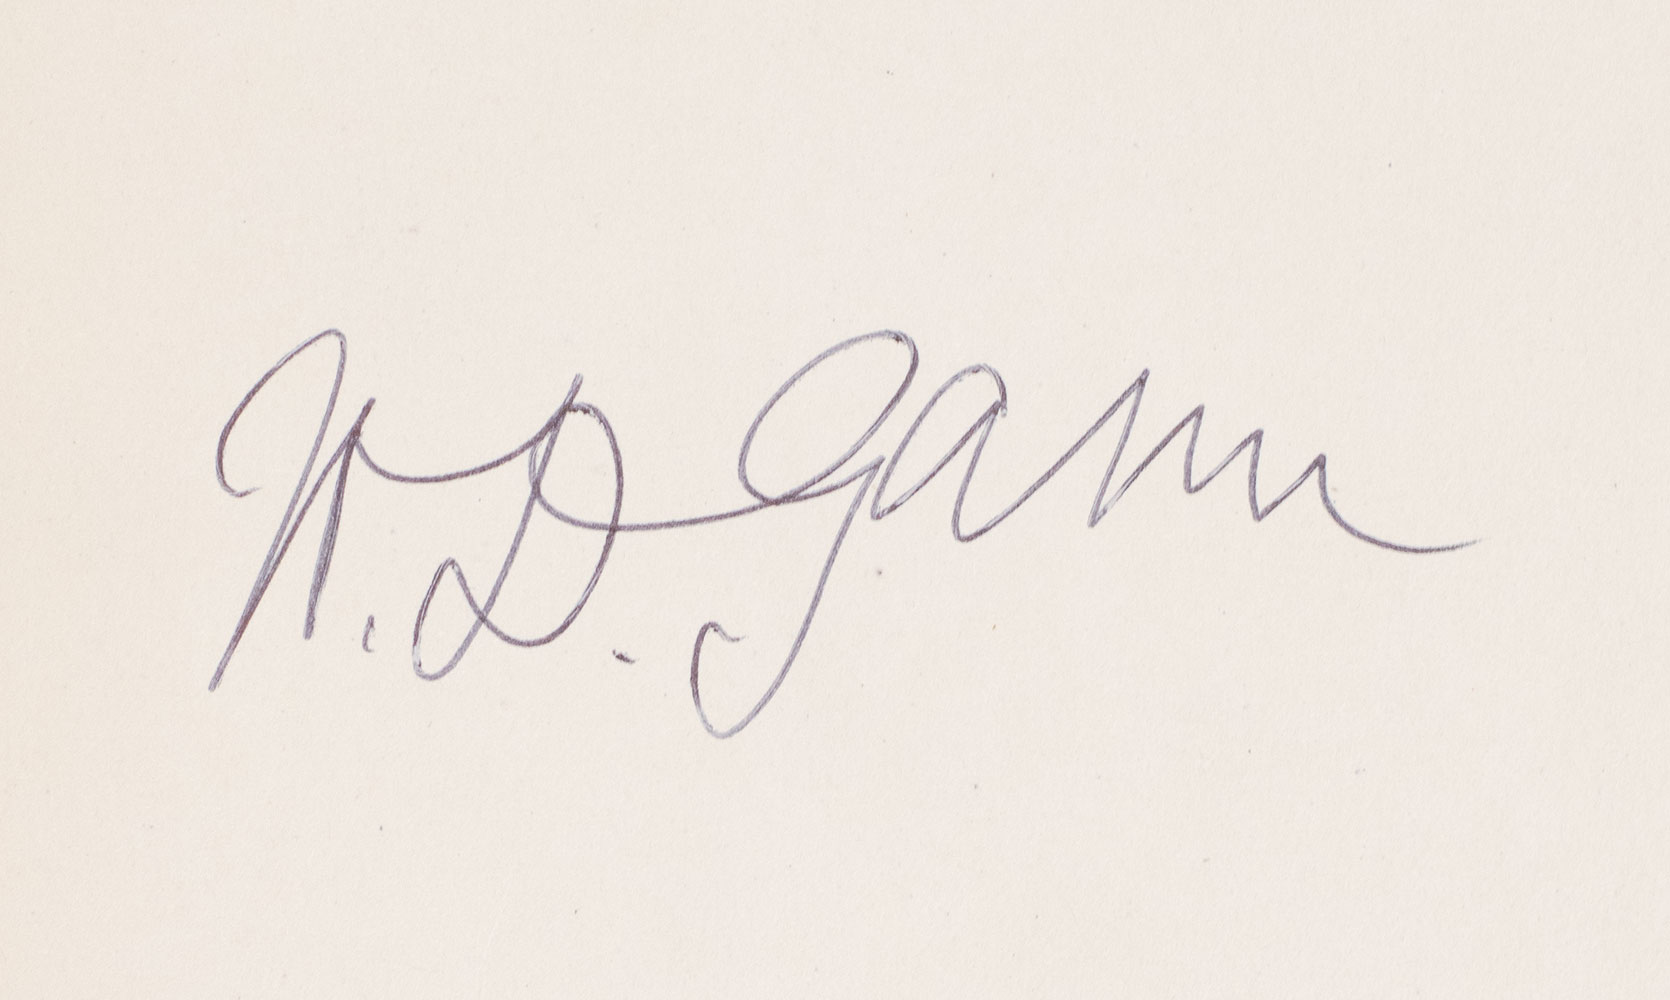 W. D. Gann